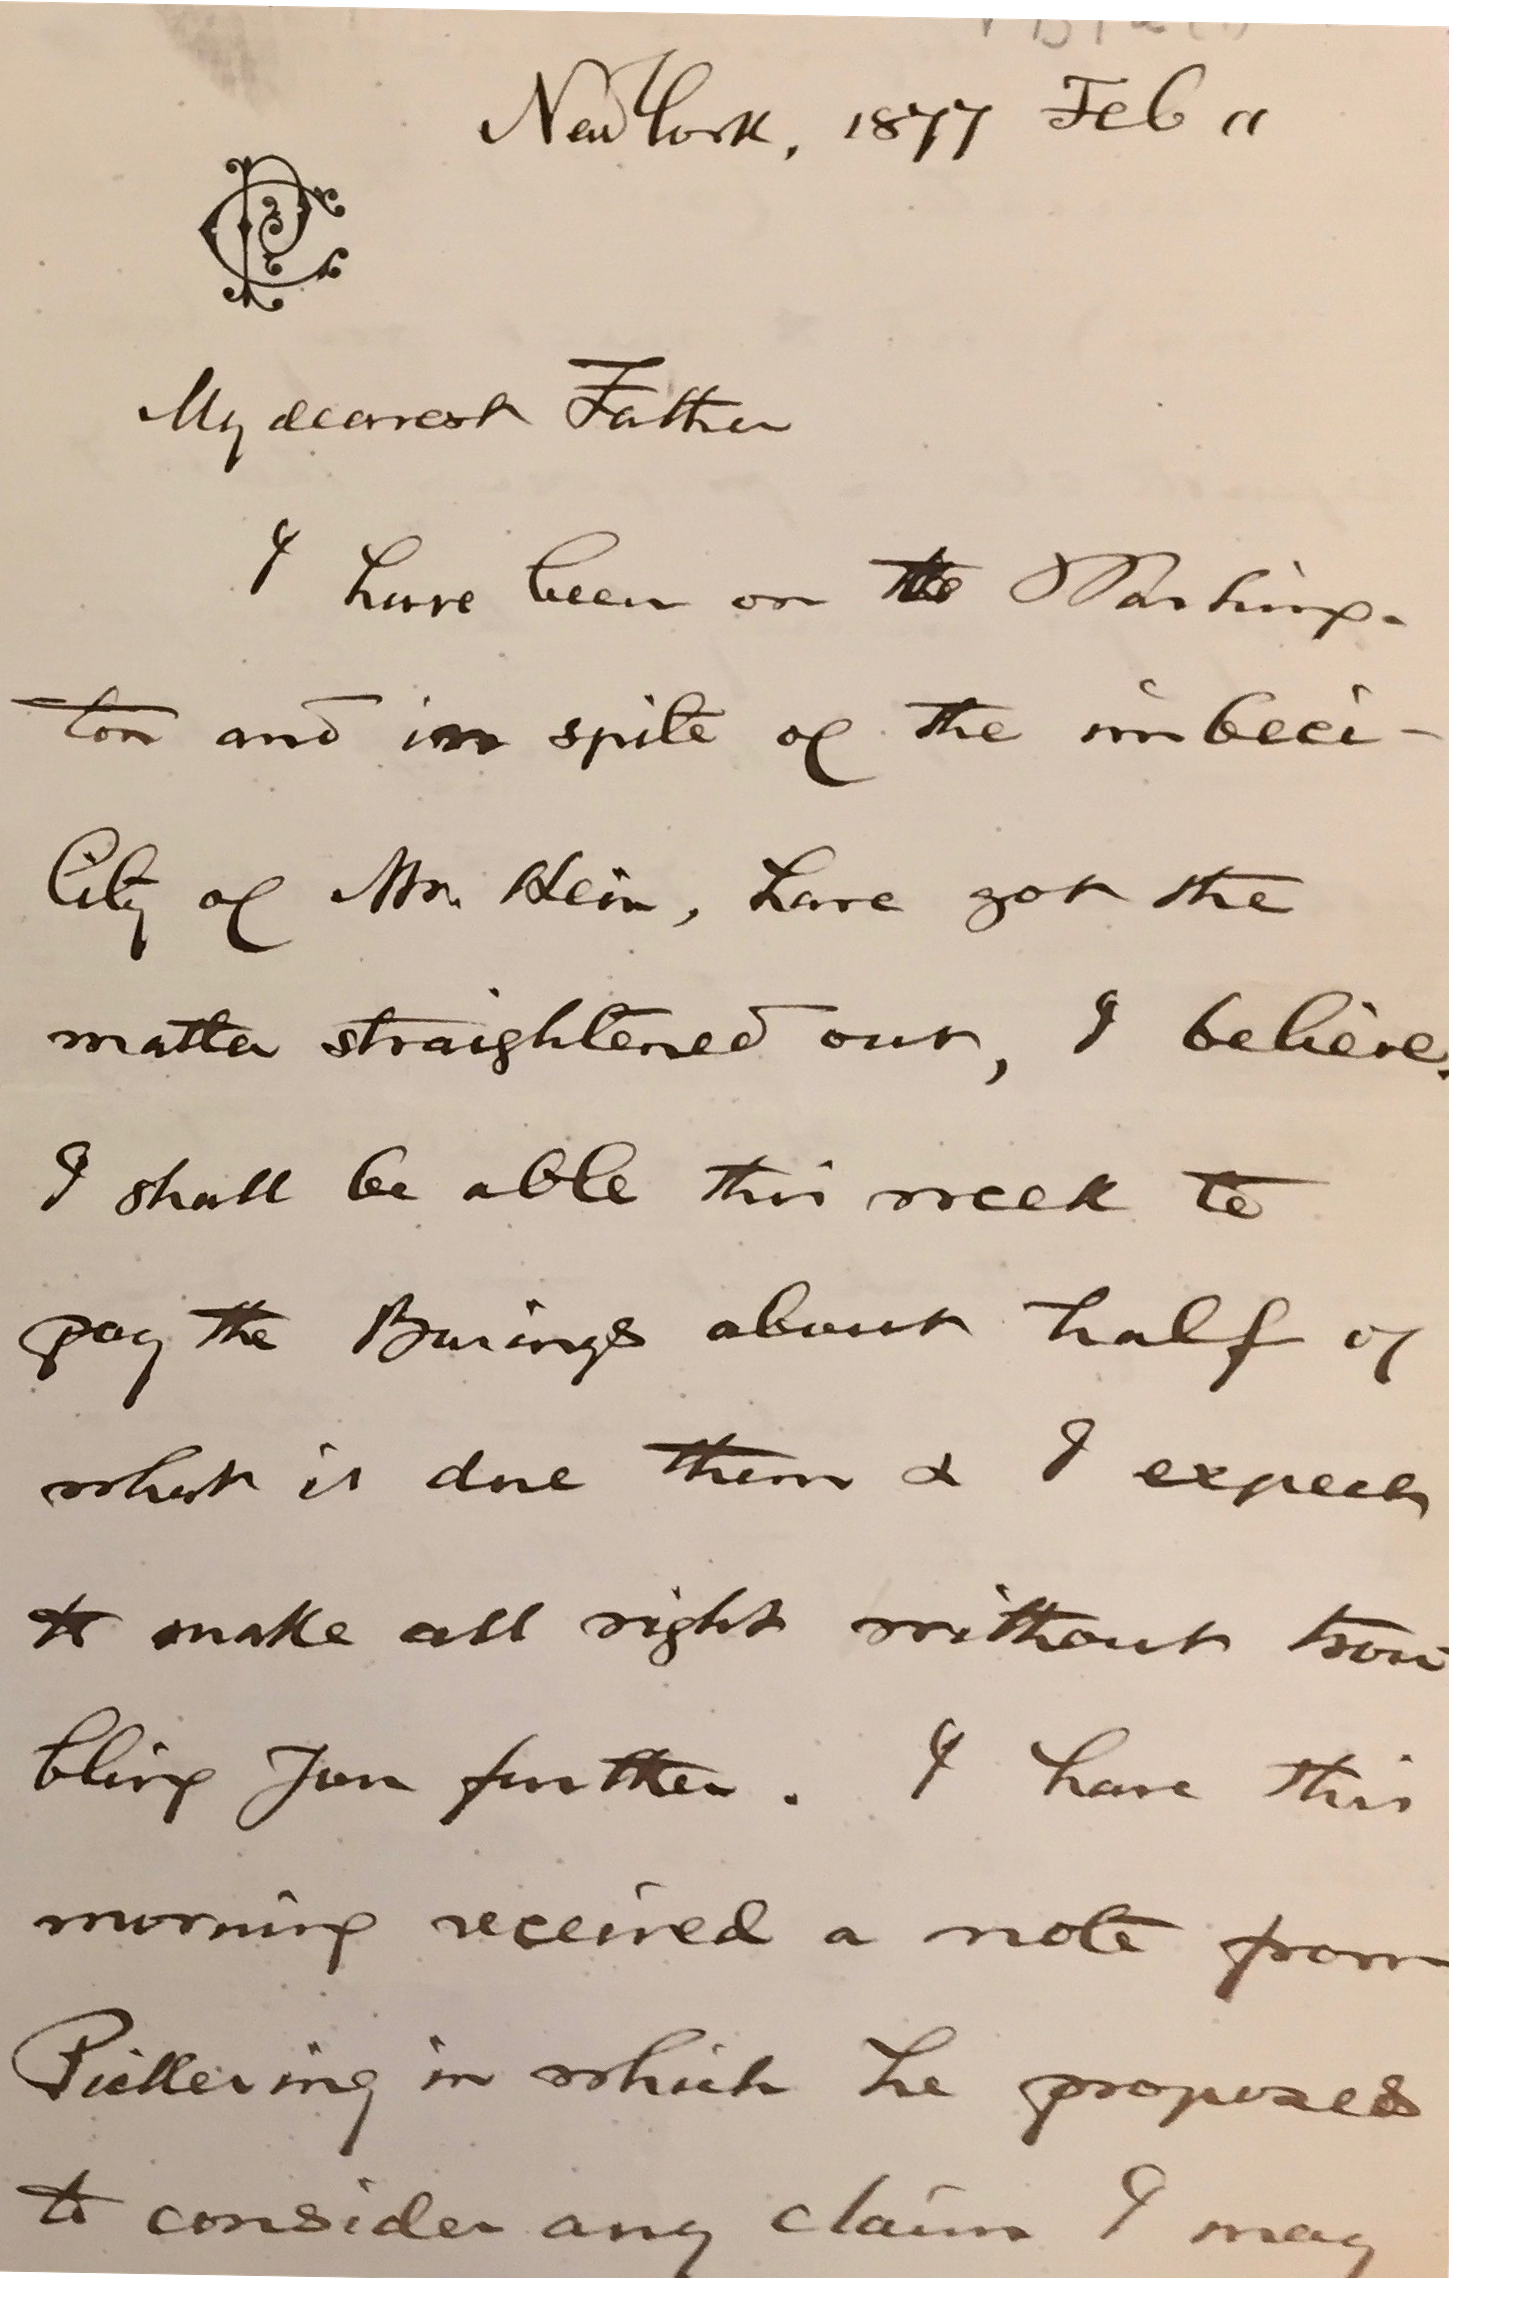 New York, 1877 Feb 11
My dearest Father
I have been on to Washing-
ton and in spite of the imbeci-
lity of Mr. Hein, have got the
matter straightened out, I believe.
I shall be able this week to
pay the Barings about half of
what is due them & I expect
to make all right without trou
bling you further. I have this
morning received a note from
Pickering in which he proposes
to consider any claim I may